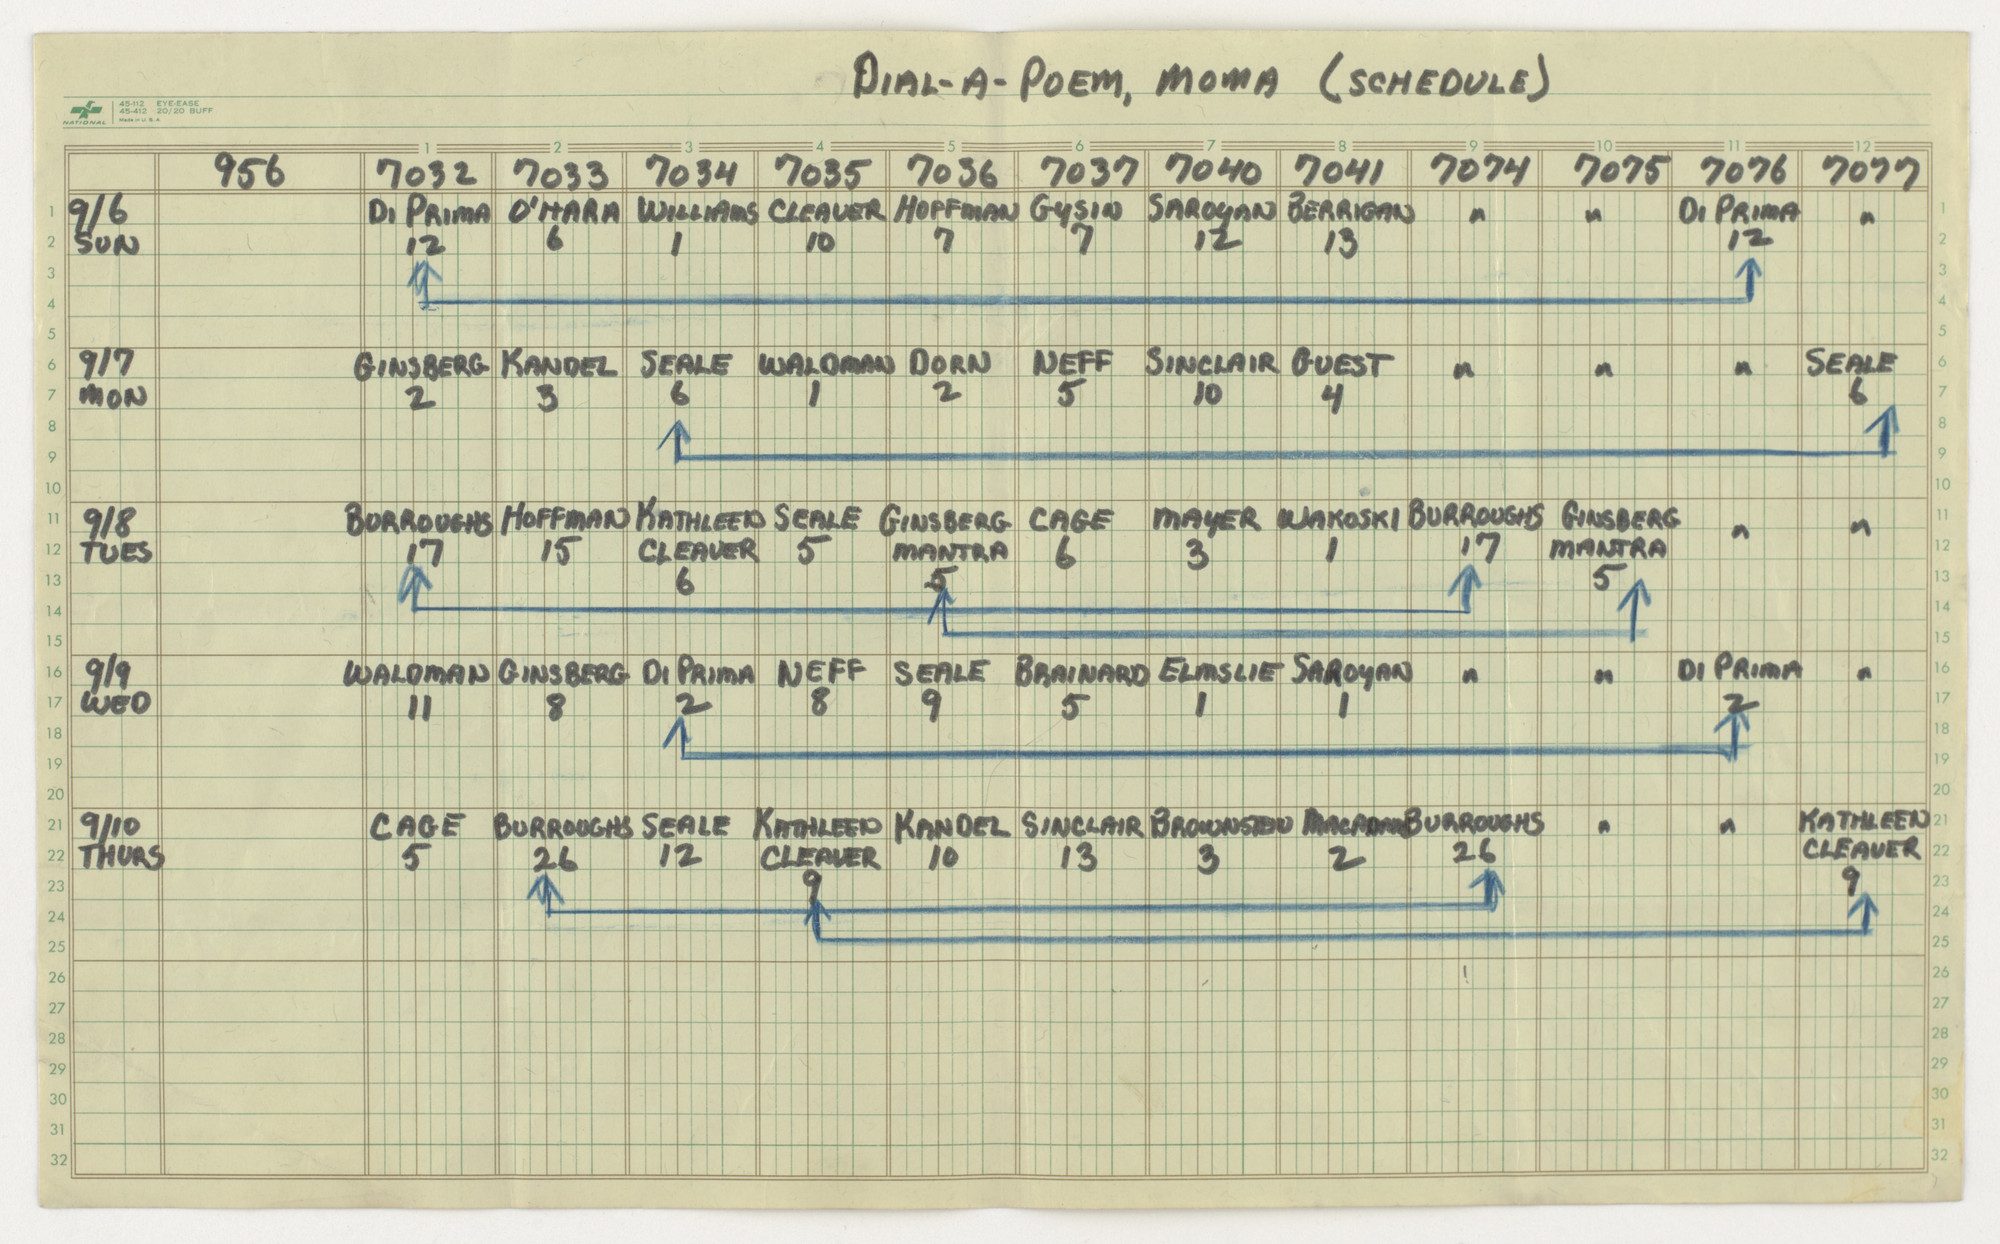 DIAL-A-POEM, MOMA (SCHEDULE)
NATIONAL 45-112 EYE-EASE
45-412 20/20 BUFF
Made in U.S.A.
1 2 3 4 5 6 7 8 9 10 11 12
956 7032 7033 7034 7035 7036 7037 7040 7041 7074 7075 7076 7077
1 9/6 DI PRIMA O'HARA WILLIAMS CLEAVER HOFFMAN GYSIN SAROYAN BERRIGAN " " DI PRIMA " 1
2 SUN 12 6 1 10 7 7 12 13 12 2
3 3
4 4
5 5
6 9/7 GINSBERG KANDEL SEALE WALDMAN DORN NEFF SINCLAIR GUEST " " " SEALE 6
7 MON 2 3 6 1 2 5 10 4 6 7
8 8
9 9
10 10
11 9/8 BURROUGHS HOFFMAN KATHLEEN SEALE GINSBERG CAGE MAYER WAKOSKI BURROUGHS GINSBERG " " 11
12 TUES 17 15 CLEAVER 5 MANTRA 6 3 1 17 MANTRA 12
13 6 5 5 13
14 14
15 15
16 9/9 WALDMAN GINSBERG DI PRIMA NEFF SEALE BRAINARD ELMSLIE SAROYAN " " DI PRIMA " 16
17 WED 11 8 2 8 9 5 1 1 2 17
18 18
19 19
20 20
21 9/10 CAGE BURROUGHS SEALE KATHLEEN KANDEL SINCLAIR BROWNSTEIN MACADAMS BURROUGHS " " KATHLEEN 21
22 THURS 5 26 12 CLEAVER 10 13 3 2 26 CLEAVER 22
23 9 9 23
24 24
25 25
26 26
27 27
28 28
29 29
30 30
31 31
32 32